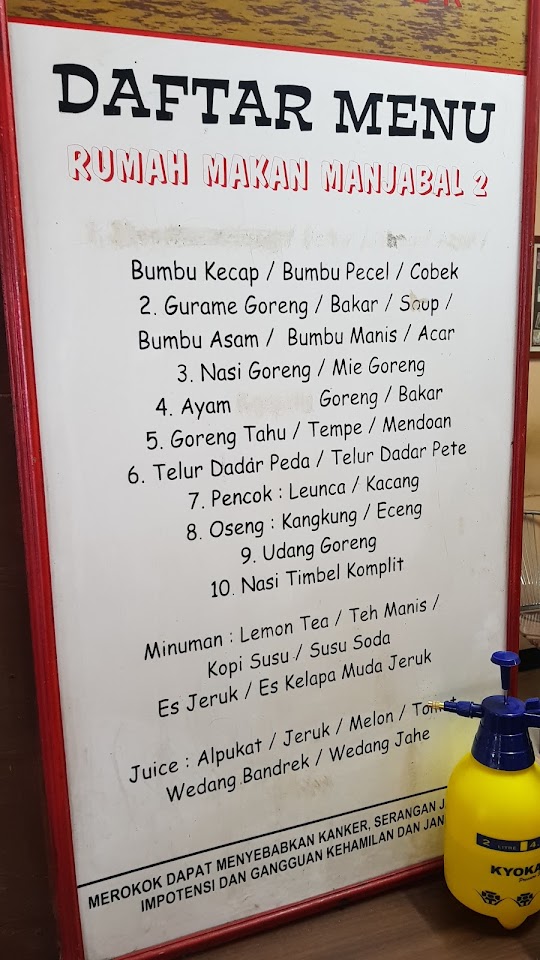 DAFTAR MENU
RUMAH MAKAN MANJABAL 2
Bumbu Kecap / Bumbu Pecel / Cobek
2. Gurame Goreng / Bakar / Soup /
Bumbu Asam / Bumbu Manis / Acar
3. Nasi Goreng / Mie Goreng
4. Ayam Goreng / Bakar
5. Goreng Tahu / Tempe / Mendoan
6. Telur Dadar Peda / Telur Dadar Pete
7. Pencok : Leunca / Kacang
8. Oseng : Kangkung / Eceng
9. Udang Goreng
10. Nasi Timbel Komplit
Minuman : Lemon Tea / Teh Manis /
Kopi Susu / Susu Soda
Es Jeruk / Es Kelapa Muda Jeruk
Juice : Alpukat / Jeruk / Melon /
Wedang Bandrek / Wedang Jahe
MEROKOK DAPAT MENYEBABKAN KANKER, SERANGAN
IMPOTENSI DAN GANGGUAN KEHAMILAN DAN
2 LITRE
KYOKA